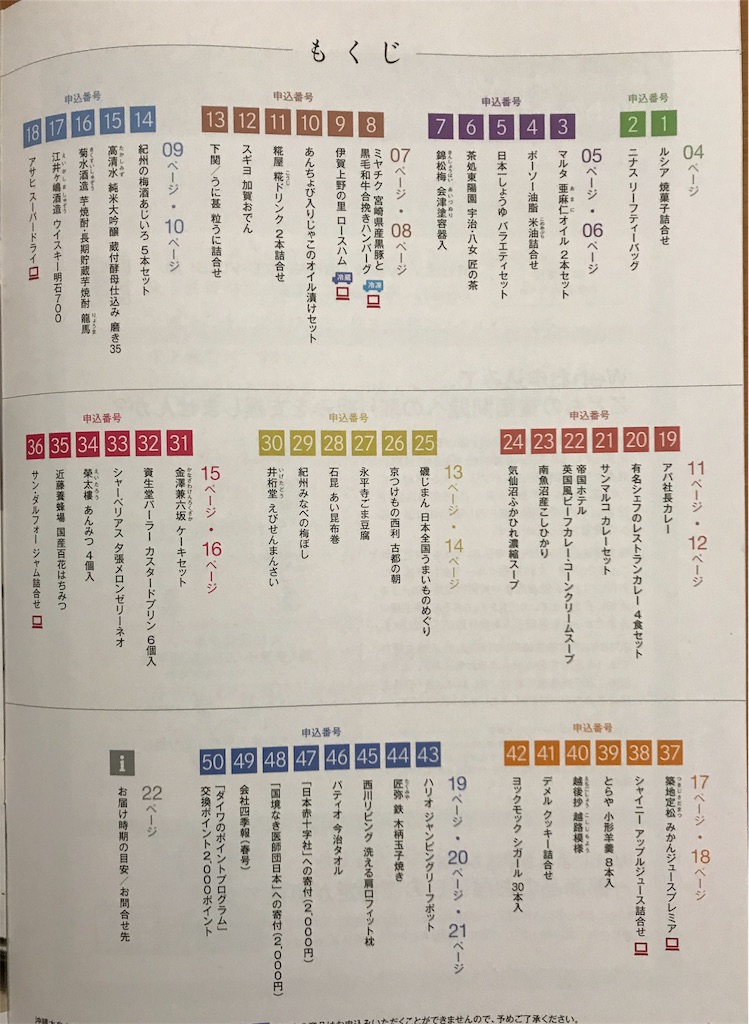 もくじ
04ページ
申込番号
1 ルシア 焼菓子詰合せ
2 ニナス リーフティーバッグ
05ページ・06ページ
申込番号
3 マルタ 亜麻仁オイル 2本セット
4 ボーソー油脂 米油詰合せ
5 日本一しょうゆ バラエティセット
6 茶処東陽園 宇治・八女 匠の茶
7 錦松梅 会津塗容器入
07ページ・08ページ
申込番号
8 ミヤチク 宮崎県産黒豚と
黒毛和牛合挽きハンバーグ 冷凍
9 伊賀上野の里 ロースハム 冷蔵
10 あんちょび入りじゃこのオイル漬けセット
11 糀屋 糀ドリンク 2本詰合せ
12 スギヨ 加賀おでん
13 下関/うに甚 粒うに詰合せ
09ページ・10ページ
申込番号
14 紀州の梅酒あじいろ 5本セット
15 高清水 純米大吟醸 蔵付酵母仕込み 磨き35
16 菊水酒造 芋焼酎・長期貯蔵芋焼酎 龍馬
17 江井ヶ嶋酒造 ウイスキー明石700
18 アサヒ スーパードライ
11ページ・12ページ
申込番号
19 アパ社長カレー
20 有名シェフのレストランカレー 4食セット
21 サンマルコ カレーセット
22 帝国ホテル
英国風ビーフカレー・コーンクリームスープ
23 南魚沼産こしひかり
24 気仙沼ふかひれ濃縮スープ
13ページ・14ページ
申込番号
25 磯じまん 日本全国うまいものめぐり
26 京つけもの西利 古都の朝
27 永平寺ごま豆腐
28 石昆 あい昆布巻
29 紀州みなべの梅ぼし
30 井桁堂 えびせんまんさい
15ページ・16ページ
申込番号
31 金澤兼六坂 ケーキセット
32 資生堂パーラー カスタードプリン 6個入
33 シャーベリアス 夕張メロンゼリーネオ
34 榮太樓 あんみつ 4個入
35 近藤養蜂場 国産百花はちみつ
36 サン・ダルフォー ジャム詰合せ
17ページ・18ページ
申込番号
37 築地定松 みかんジュースプレミア
38 シャイニー アップルジュース詰合せ
39 とらや 小形羊羹 8本入
40 越後抄 越路模様
41 デメル クッキー詰合せ
42 ヨックモック シガール 30本入
19ページ・20ページ・21ページ
申込番号
43 ハリオ ジャンピングリーフポット
44 匠弥 鉄 木柄玉子焼き
45 西川リビング 洗える肩口フィット枕
46 パティオ 今治タオル
47 「日本赤十字社」への寄付(2,000円)
48 「国境なき医師団日本」への寄付(2,000円)
49 会社四季報(春号)
50 「ダイワのポイントプログラム」
交換ポイント2,000ポイント
22ページ
i お届け時期の目安/お問合せ先
お申込みいただくことができませんので、予めご了承ください。